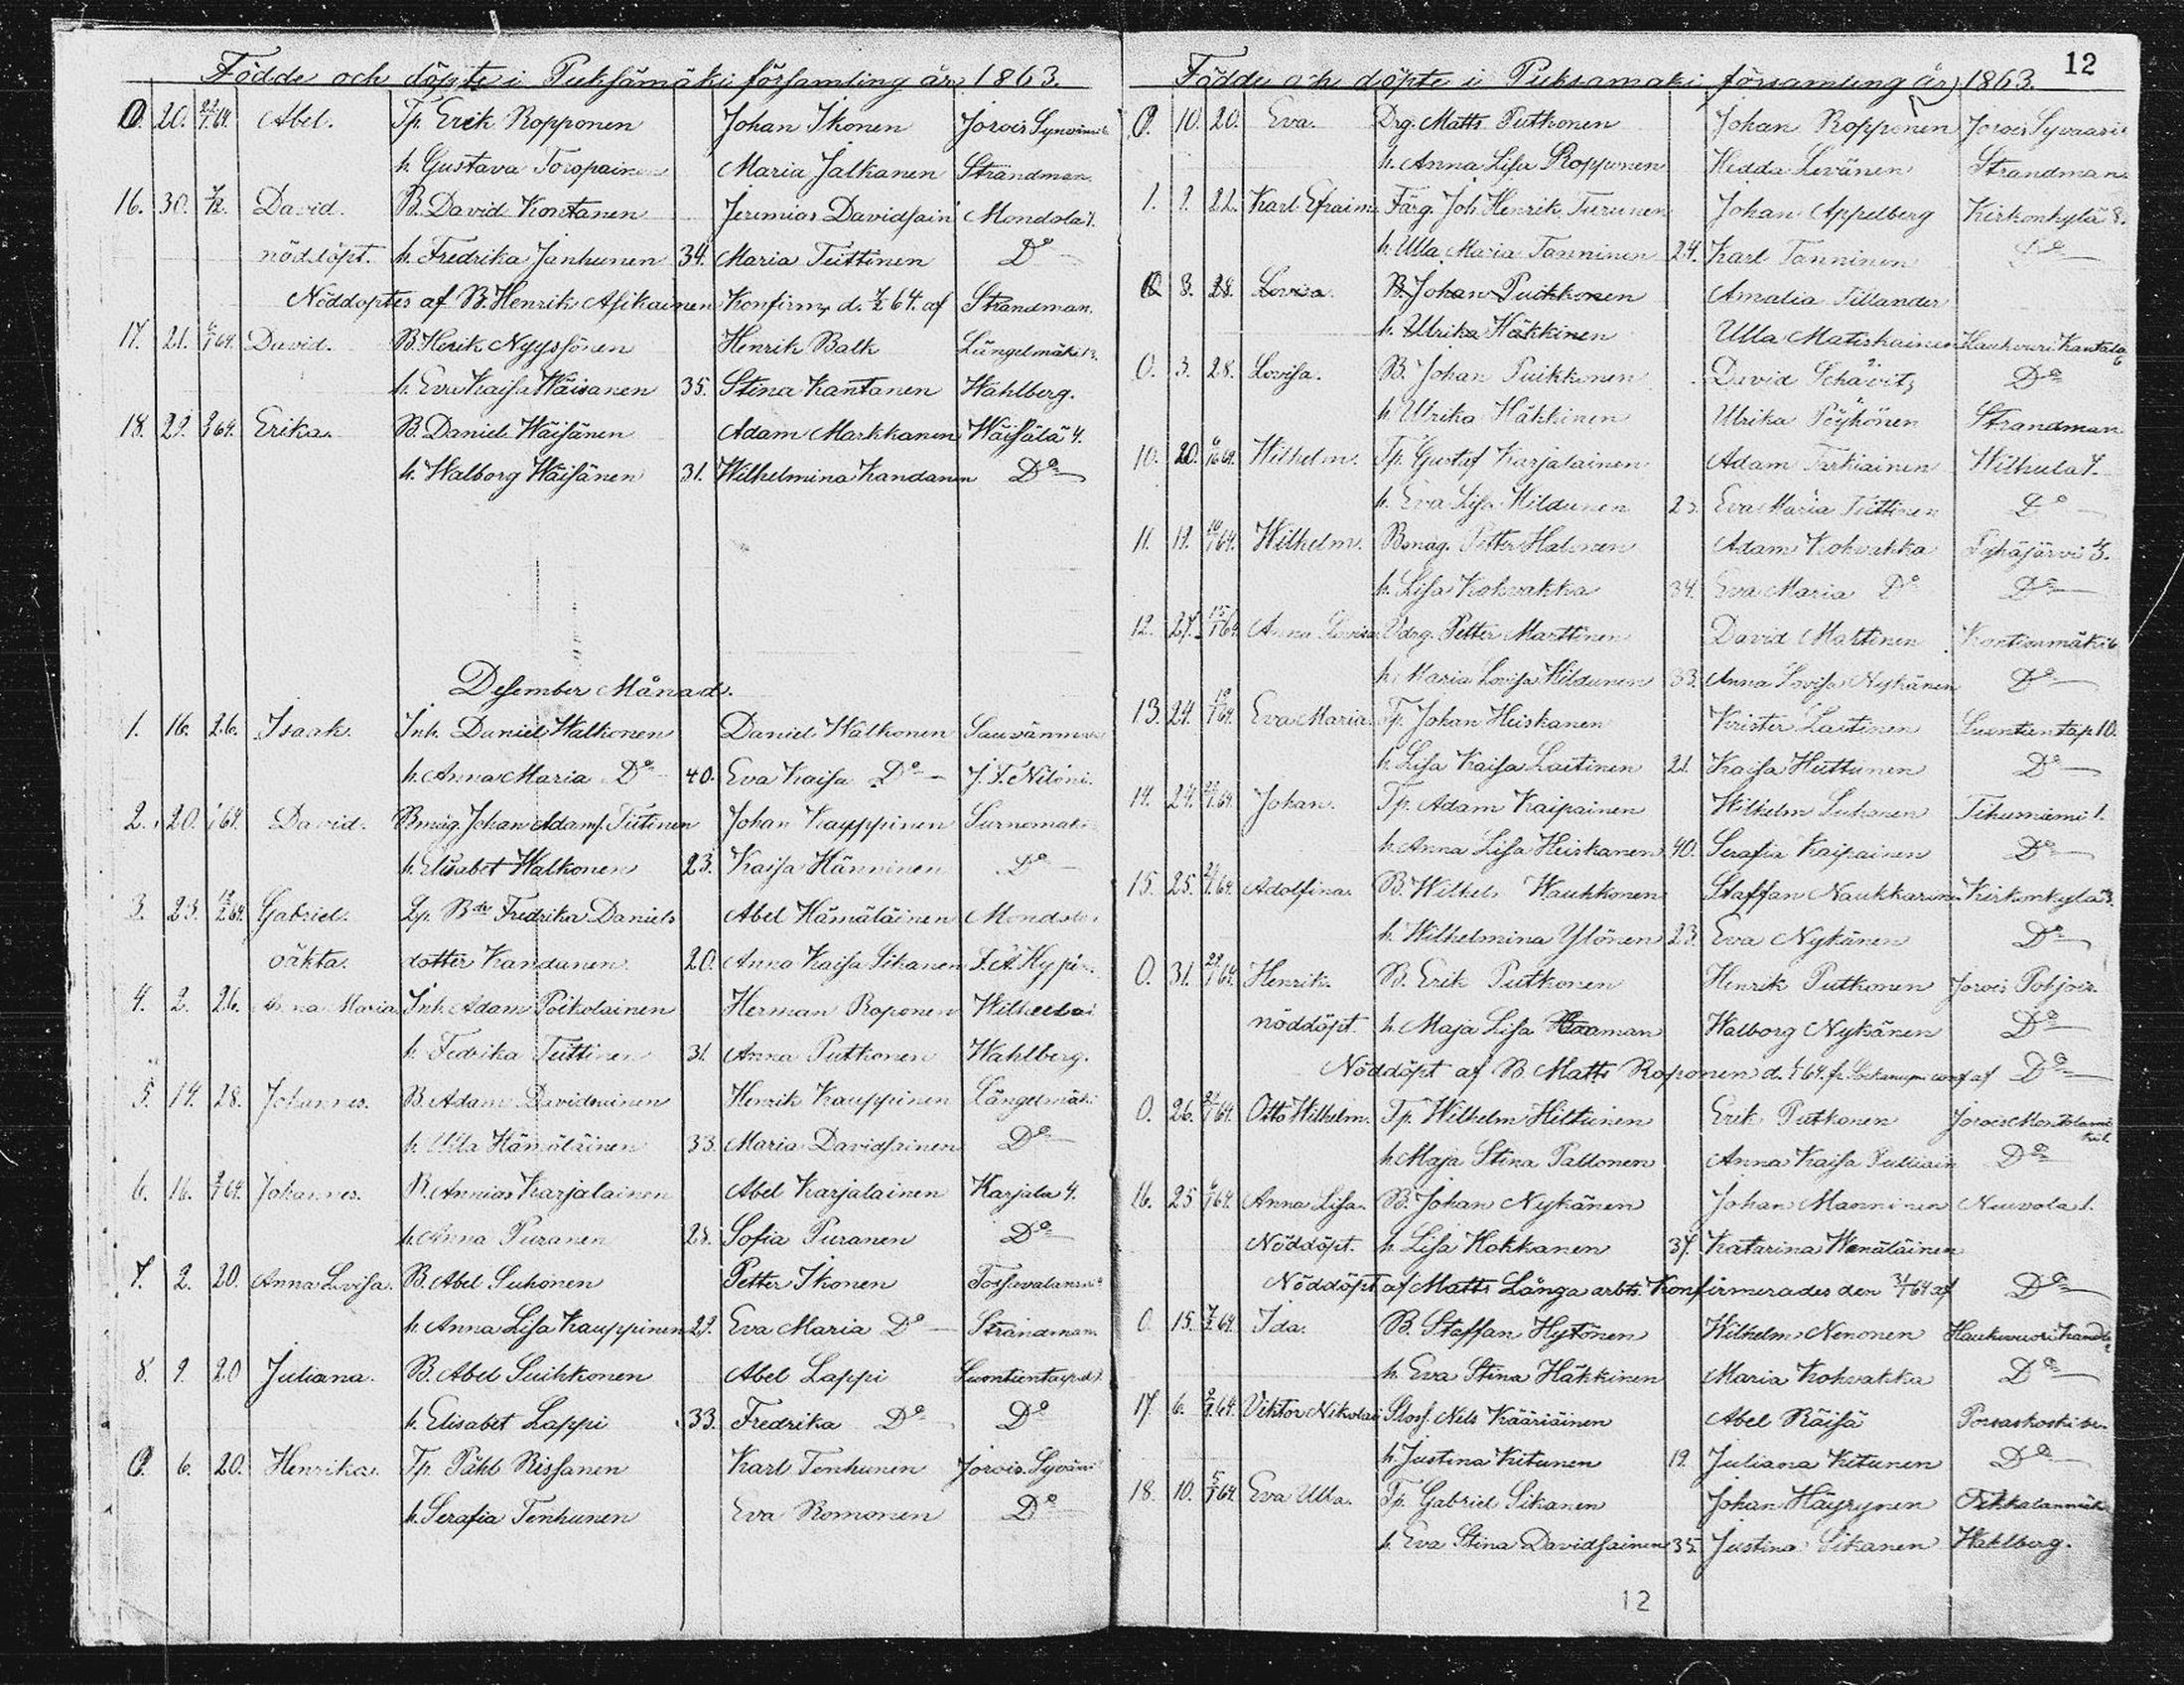 Födde och döpte i Pieksämäki församling år 1863.
0. 20. 22/1.64. Abel. Tp. Erik Ropponen Johan Ikonen Jorois
h. Gustava Toropainen Maria Jalkanen Strandman.
16. 30. David. B. David Kontanen Jeremias Davidsain Mondola 1.
nöddöpt. h. Fredrika Janhunen 34. Maria Tiittinen Do
Nöddoptes af B. Henrik Asikainen Konfirm. d. 64. af Strandman.
17. 21. 6/1 64. David. B. Henrik Nyyssönen Henrik Balk Längelmäki
h. Eva Kaisa Wäisanen 35. Stina Kantanen Wahlberg.
18. 29. 64. Erika. B. Daniel Wäisänen Adam Markkanen Wäisälä 4.
h. Walborg Wäisänen 31. Wilhelmina Kandanen Do
Desember Månad.
1. 16. 26. Isaak. Inh. Daniel Walkonen Daniel Walkonen
h. Anna Maria Do 40. Eva Kaisa Do
2. 20. 64. David. Bmåg. Johan Adams. Tiitinen Johan Kauppinen
h. Elisabet Walkonen 23. Kaisa Hänninen Do
3. 23. 64. Gabriel. Lp. Bdr Fredrika Daniels Abel Hämäläinen
oäkta. dotter Kandanen 20. Anna Kaisa Sikanen
4. 2. 26. Anna Maria Inh. Adam Poikolainen Herman Roponen
h. Fedrika Tiittinen 31. Anna Putkonen Wahlberg.
5. 14. 28. Johannes. B. Adam Davidsainen Henrik Kauppinen Längelmäki
h. Ulla Hämäläinen 33. Maria Davidsainen Do
6. 16. 64. Johannes. B. Annias Karjalainen Abel Karjalainen Karjala 4.
h. Anna Puranen 28. Sofia Puranen Do
7. 2. 20. Anna Lovisa. B. Abel Suhonen Petter Ikonen
h. Anna Lisa Kauppinen 29. Eva Maria Do Strandman.
8. 9. 20 Juliana. B. Abel Suihkonen Abel Lappi
h. Elisabet Lappi 33. Fredrika Do Do
0. 6. 20. Henrika. Tp. Påhl Rissanen Karl Tenhunen Jorois
h. Serafia Tenhunen Eva Romonen Do
12
Födde och döpte i Pieksamaki församling år 1863.
0. 10. 20. Eva. Drg. Matts Putkonen Johan Ropponen Jorois
h. Anna Lisa Ropponen Hedda Levänen Strandman.
1. 9. 22. Karl Efraim. Färg. Joh. Henrik Turunen Johan Appelberg Kirkonkylä 8.
h. Ulla Maria Tanninen 24. Karl Tanninen Do
0. 3. 28. Lovisa. B. Johan Puikkonen Amalia Tillander
h. Ulrika Häkkinen Ulla Matiskainen Haukivuori Kantala 6
0. 3. 28. Lovisa. B. Johan Puikkonen David Schavitz Do
h. Ulrika Häkkinen Ulrika Pöyhönen Strandman
10. 20. 64. Wilhelm. Tp. Gustaf Karjalainen Adam Tarkiainen Wilhula 7.
h. Eva Lisa Hildunen Eva Maria Tiittinen Do
11. 19. 10/1 64. Wilhelm. Bmåg. Petter Halonen Adam Kohvakka Pyhäjärvi 3.
h. Lisa Kohvakka 34. Eva Maria Do Do
12. 27. 15/1 64. Anna Lovisa Petter Marttinen David Marttinen Kontionmäki 6
h. Maria Lovisa Hildunen 33. Anna Lovisa Nykänen Do
13. 24. 64. Eva Maria. Tp. Johan Heiskanen Krister Laitinen Suontientap 10.
h. Lisa Kaisa Laitinen 21. Kaisa Huttunen Do
14. 24. 64. Johan. Tp. Adam Kaipainen Wilhelm Suhonen Tihuniemi 1.
h. Anna Lisa Heiskanen 40. Serafia Kaipainen Do
15. 25. 64. Adolfina. B. Wilhel. Waukkonen Staffan Naukkarinen Kirkonkyla 3.
h. Wilhelmina Ylönen 23. Eva Nykänen Do
0. 31. 29/1 64. Henrik. B. Erik Putkonen Henrik Putkonen Jorois
nöddöpt. h. Maja Lisa Walborg Nykänen Do
Nöddöpt af B. Matts Roponen d. 64. af Do
0. 26. 64. Otto Wilhelm. Tp. Wilhelm Hiltunen Erik Putkonen Jorois
h. Maja Stina Pallonen Anna Kaisa Do
16. 25 6/1 64. Anna Lisa. B. Johan Nykänen Johan Manninen Neuvola 1.
Nöddöpt. h. Lisa Hokkanen 37. Katarina Wenäläinen
Nöddöpt af Matts Långa arbts. Konfirmerades den 31/1 64 af Do
0. 15. 64. Ida. B. Staffan Hytönen Wilhelm Nenonen Haukivuori
h. Eva Stina Häkkinen Maria Kohvakka Do
17. 6. 64. Viktor Nikolai Slosf. Nils Kääriäinen Abel Räisä
h. Justina Kitunen 19. Juliana Kitunen Do
18. 10. 5/1 64. Eva Ulla. Tp. Gabriel Sikanen Johan Häyrynen
h. Eva Stina Davidsainen 35. Justina Sikanen Wahlberg.
12